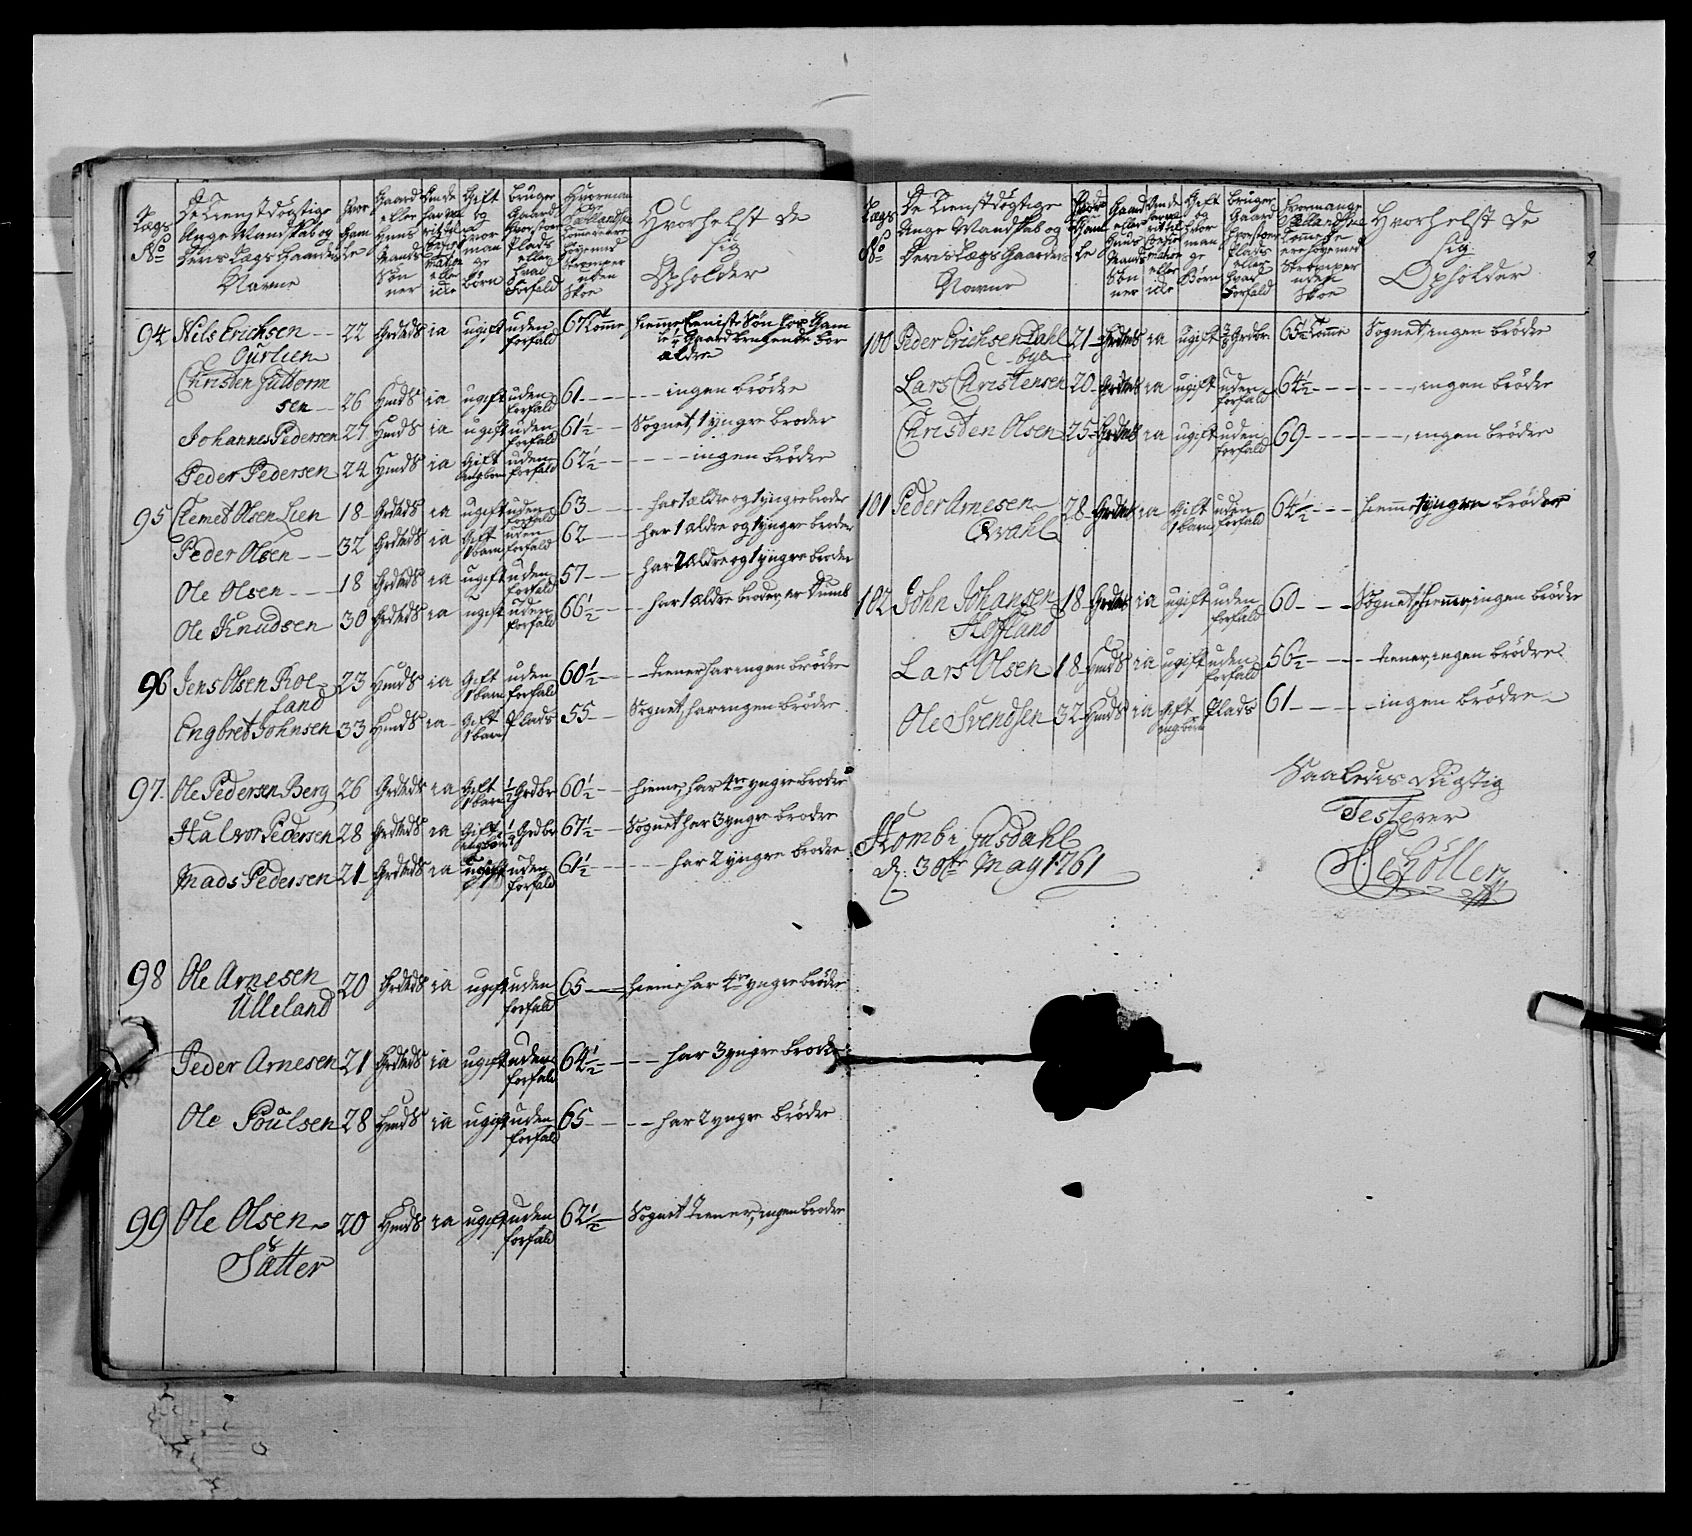 Lægs No
De Tienstdøgtige
Unge Mandskab og
Deris Lægs Gaarders
Navne
Gaard
eller
Huus
Mands
Søn
ner
Gift
og
hvor
man
ge
børn
bruger
Gaard
Plads
eller
hvad
Forfald
Strømper
uden
Skoe
Hvorhelst de
sig
Opholder
94 Nils Erichsen 22 Grdds ia ugift uden forfald 67 Tomme
Christen Guttorm
sen 26 Hmds ia ugift uden forfald 61 ingen brødre
Johannes Pedersen 27 Hmds ia ugift uden forfald 61 1/2 Sognet, 1 yngre broder
Peder Pedersen 24 Hmds ia Gift uden forfald 62 1/2 ingen brødre
95 Clemet Olsen Lien 18 Grdds ia ugift uden forfald 63 har 1 ældre og 1 yngre broder
Peder Olsen 32 Grdds ia Gift 1 barn uden forfald 62 har 1 ældre og 1 yngre broder
Ole Olsen 18 Grdds ia ugift uden forfald 57 har 2 ældre og 1 yngre broder
Ole Knudsen 30 Grdds ia ugift uden forfald 66 1/2 har 1 ældre broder, er Dumb
96 Jens Olsen Roe
land 23 Hmds ia Gift 1 barn uden forfald 60 1/2 tiener har ingen brødre
Engbret Johnsen 33 Hmds ia Gift 1 barn Plads 55 Sognet, har ingen brødre
97 Ole Pedersen Berg 26 Grdds ia Gift 1 barn 1/2 Grdbr 60 1/2 hieme, har 4re yngre brødre
Halvor Pedersen 28 Grdds ia Gift 1/2 Grdbr 67 1/2 Sognet har 3 yngre brødre
Mads Pedersen 21 Grdds ia ugift uden forfald 61 1/2 har 2 yngre brødre
98 Ole Arnesen
Ulleland 20 Grdds ia ugift uden forfald 65 hieme har 4re yngre brødre
Peder Arnesen 21 Grdds ia ugift uden forfald 64 1/2 har 3 yngre brødre
Ole Poulsen 28 Hmds ia ugift uden forfald 65 har 2 yngre brødre
99 Ole Olsen
Sætter 20 Hmds ia ugift uden forfald 62 1/2 Sognet tiener, ingen brødre
Lægs No
De Tienstdøgtige
Unge Mandskab og
Deris Lægs Gaarders
Navne
Gaard
eller
Huus
Mands
Søn
ner
Gift
og
hvor
man
ge
Børn
bruger
Gaard
Plads
eller
hvad
Forfald
Strømper
uden
Skoe
Hvorhelst de
sig
Opholder
100 Peder Erichsen Dahl
bye 21 Grdds ia ugift Grdbr 65 1/2 Tomme Sognet, ingen brødre
Lars Christensen 20 Grdds ia ugift uden forfald 64 1/2 ingen brødre
Christen Olsen 25 Grdds ia ugift uden forfald 69 ingen brødre
101 Peder Arnesen
Qvahl 28 Grdds ia Gift 1 barn uden forfald 64 1/2 hieme 1 yngre broder
102 John Johansen
Hofland 18 Grdds ia ugift uden forfald 60 Sognet, hieme, ingen brødre
Lars Olsen 18 Hmds ia ugift uden forfald 56 1/2 tiener, ingen brødre
Ole Svendsen 32 Hmds ia Gift Plads 61 ingen brødre
Saaledis Rigtig
Testerer
Kombi Gusdahl
d: 30te May 1761